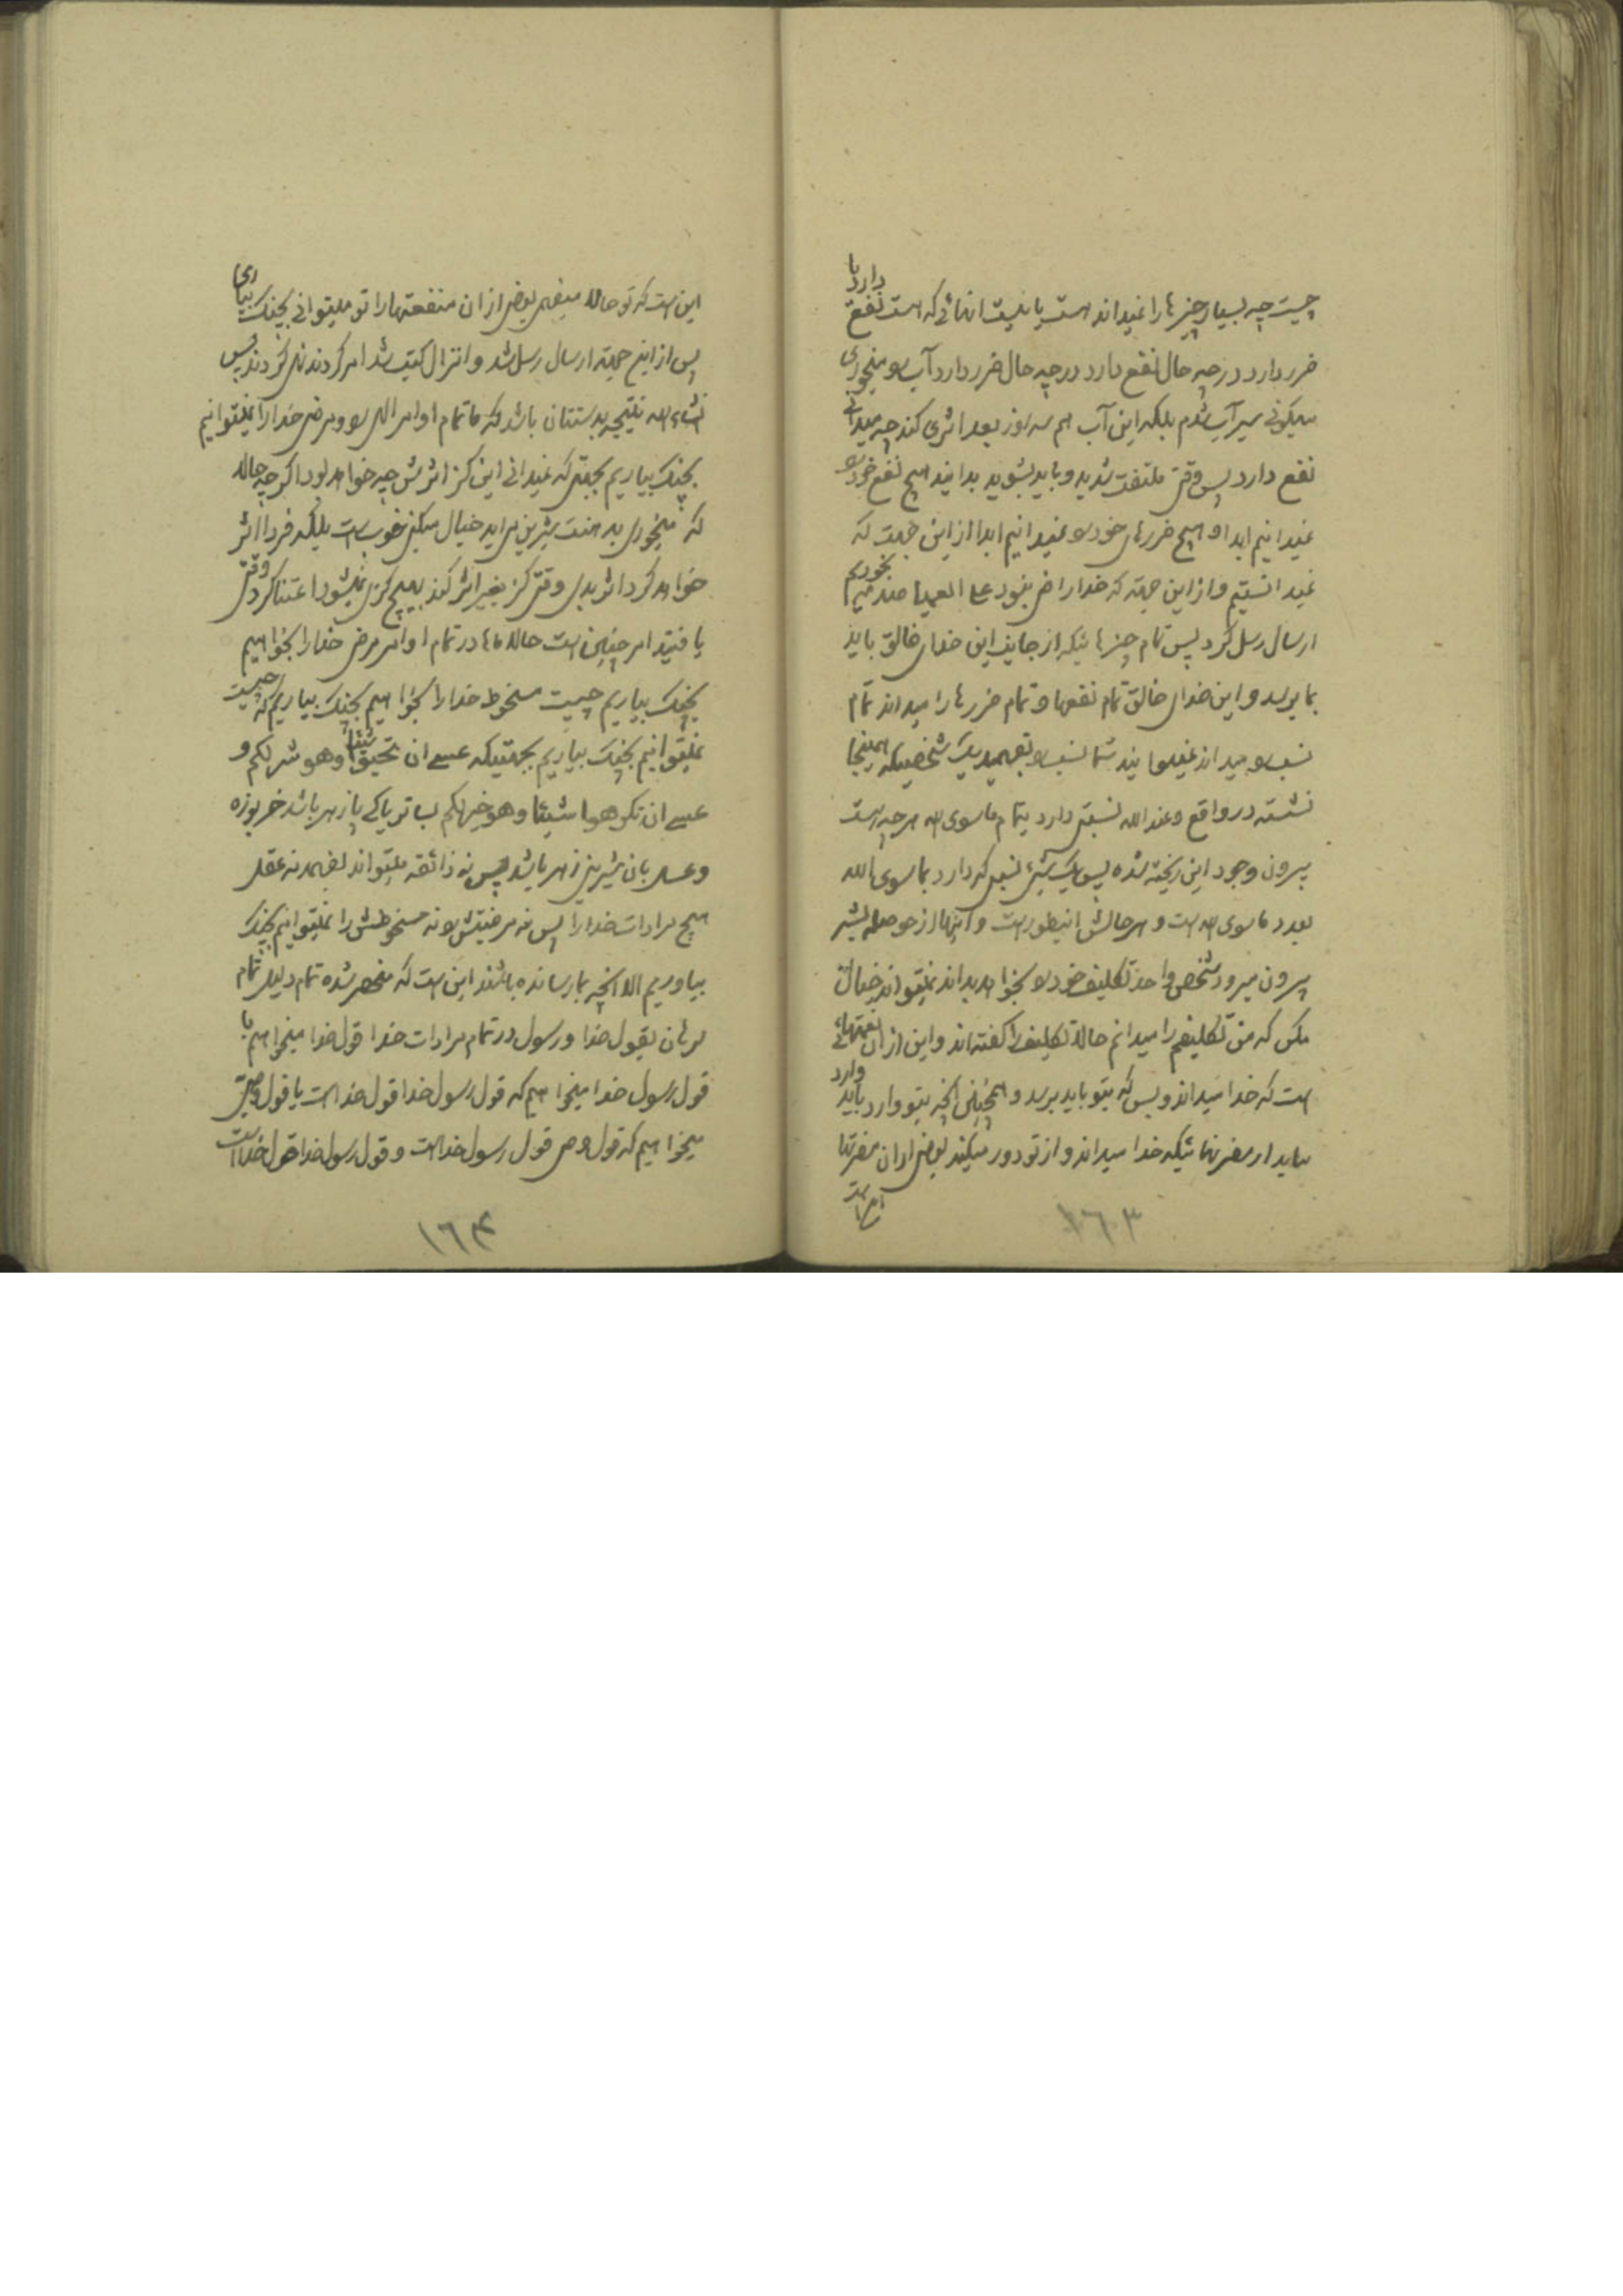 چیست چه بسیار چیزها را نمیداند هست یا نیست آنهائی که هست نفع دارد یا
ضرر دارد در چه حال نفع دارد در چه حال ضرر دارد آب را میخوری
میگوئی سیر آب شدم بلکه این آب هم سه روز بعد اثری کند چه میدانی
نفع دارد پس وقتی ملتفت شدید و باید بشوید بدانید هیچ نفع خود را
نمیدانیم ابدا و هیچ ضررهای خود را نمیدانیم ابدا از این جهت که
نمیدانستیم و از این جهة که خدا راضی نبود علی العمیا صدمه بخوریم
ارسال رسل کرد پس تمام چیزهائیکه از جانب این خدای خالق باید
بما برسد و این خدای خالق تمام نفعها و تمام ضررها را میداند تمام
نسب را میداند نمیدانید شما نسب را بفهمید یک شخصیکه اینجا
نشسته در واقع و عند الله نسبتی دارد بتمام ماسوی الله هر چه هست
بیرون وجود این ریخته شده پس یک شیئ نسبی که دارد بماسوی الله
بعدد ماسوی الله است و هر حالش اینطور است و اینها از حوصله بشر
بیرون میرود شخص واحد تکلیف خود را بخواهد بداند نمیتواند خیال
مکن که من تکلیفم را میدانم حالا تکلیف را گفته اند و این از آن نعمتهائی
است که خدا میداند و بس که بتو باید برسد و همچنین آنچه بتو وارد باید وارد
نیاید از مضرتهائیکه خدا میداند و از تو دور میکند بعضی از آن مضرتها
١٦٣
این است که تو حالا میفهمی بعضی از آن منفعتها را تو میتوانی بچنگ بیاری
پس از این جهة ارسال رسل شد و انزال کتب شد امر کردند نهی کردند پس
انشاء الله نتیجه بدستتان باشد که ما تمام اوامر الهی را و مرضی خدا را نمیتوانیم
بچنگ بیاریم بجهتی که نمیدانی این کز اثرش چه خواهد بود اگر چه حالا
که میخوری بدهنت شیرین میاید خیال میکنی خوب است بلکه فردا اثر
خواهد کرد اثر بدی وقتی کز بغیر اثر کند بهیچ کزی نمیشود اعتنا کرد وقتی
یافتید امر چنین است حالا ماها در تمام اوامر مرضی خدا را بخواهیم
بچنگ بیاریم چیست مسخوط خدا را بخواهیم بچنگ بیاریم که چیست
نمیتوانیم بچنگ بیاریم بجهتیکه عسی ان تحبوا شیئا وهو شر لکم و
عسی ان تکرهوا شیئا وهو خیر لکم بسا تریاکی پازهر باشد خربوزه
و عسل بآن شیرینی زهر باشد پس نه ذائقه میتواند بفهمد نه عقل
هیچ مرادات خدا را پس نه مرضیتش را نه مسخوطش را نمیتوانیم بچنگ
بیاوریم الا آنچه بما رسانده باشند این است که منحصر شده تمام دلیل تمام
برهان بقول خدا و رسول در تمام مرادات خدا قول خدا میخواهیم یا
قول رسول خدا میخواهیم که قول رسول خدا قول خدا است یا قول وصی
میخواهیم که قول وصی قول رسول خدا است و قول رسول خدا قول خدا است
١٦٤